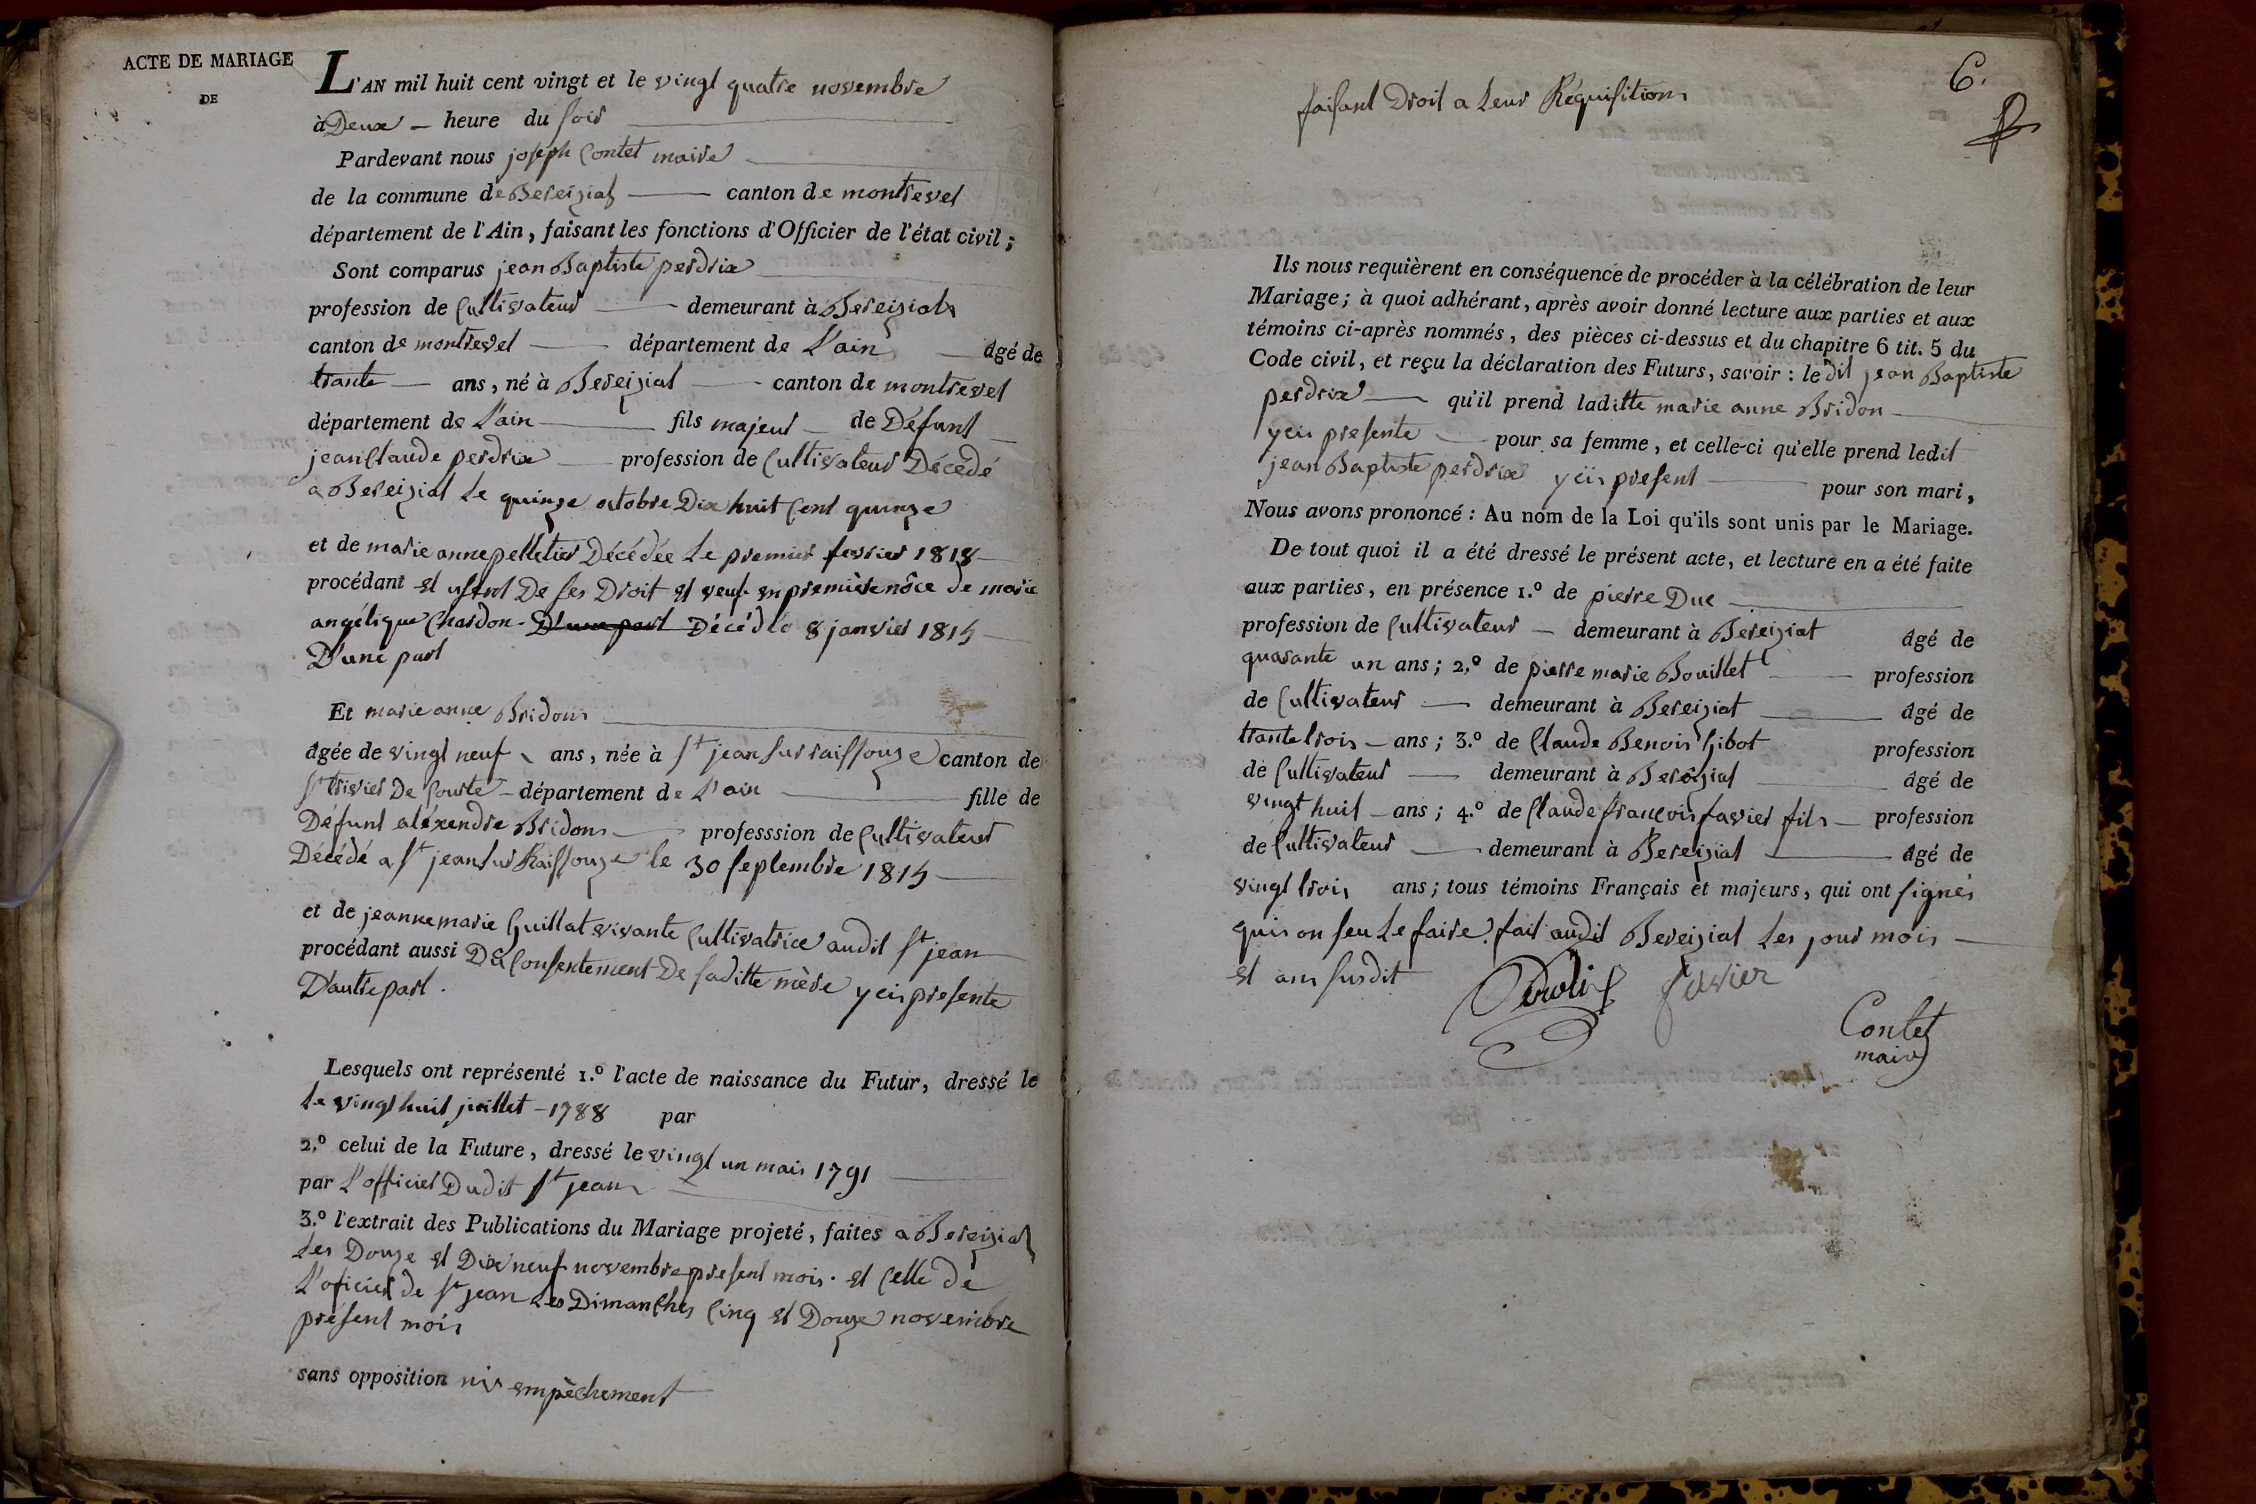 ACTE DE MARIAGE
DE
L'AN mil huit cent vingt et le vingt quatre novembre
à Deux — heure du soir
Pardevant nous joseph Contet maire
de la commune de Bereiziat — canton de montrevel
département de l'Ain, faisant les fonctions d'Officier de l'état civil ;
Sont comparus jean Baptiste perdrix
profession de Cultivateur — demeurant à Bereiziat
canton de montrevel — département de L'ain — âgé de
trante — ans, né à Bereiziat — canton de montrevel
département de L'ain — fils majeur — de Défunt
jean Claude perdrix — profession de Cultivateur Décédé
a Bereiziat Le quinze octobre Dix huit Cent quinze
et de marie anne pelletier Décédée Le premier fevrier 1818
procédant et usant De ses Droit et veuf en premiere nôce de marie
angélique Chardon. D'une part Décédé 8 janvier 1815
D'une part
Et marie anne Bridon
âgée de vingt neuf ans, née à St jean sur raissouze canton de
St trivier De Courte — département de L'ain — fille de
Défunt aléxendre Bridon — professsion de Cultivateur
Décédé a St jean sur Raissouze le 30 septembre 1815
et de jeanne marie Guillat vivante Cultivatrice audit St jean
procédant aussi Du Consentement De saditte mère ycis presente
D'autre part.
Lesquels ont représenté 1.º l'acte de naissance du Futur, dressé le
Le vingt huit juillet - 1788 par
2.º celui de la Future, dressé le vingt un mais 1791
par L'officier Dudit St jean
3.º l'extrait des Publications du Mariage projeté, faites a Bereiziat
Les Douze et Dix neuf novembre present mois. et Celle de
L'oficier de St jean Les Dimanches Cinq et Douze novembre
présent mois
sans opposition nis empêchement
6.
faisant Droit a Leur Réquisition
Ils nous requièrent en conséquence de procéder à la célébration de leur
Mariage ; à quoi adhérant, après avoir donné lecture aux parties et aux
témoins ci-après nommés, des pièces ci-dessus et du chapitre 6 tit. 5 du
Code civil, et reçu la déclaration des Futurs, savoir : le dit jean Baptiste
perdrix — qu'il prend laditte marie anne Bridon
ycis presente — pour sa femme, et celle-ci qu'elle prend ledit
jean Baptiste perdrix ycis present — pour son mari,
Nous avons prononcé : Au nom de la Loi qu'ils sont unis par le Mariage.
De tout quoi il a été dressé le présent acte, et lecture en a été faite
aux parties, en présence 1.º de pierre Duc
profession de Cultivateur — demeurant à Bereiziat âgé de
quarante un ans ; 2.º de pierre marie Bouillet — profession
de Cultivateur — demeurant à Bereiziat — âgé de
trante trois — ans ; 3.º de Claude Benois Gibot profession
de Cultivateur — demeurant à Bereiziat — âgé de
vingt huit — ans ; 4.º de Claude françois favier fils — profession
de Cultivateur — demeurant à Bereiziat — âgé de
vingt trois ans ; tous témoins Français et majeurs, qui ont signés
quis on seu Le faire. fait audit Bereiziat Les jour mois
et ans susdit
favier
Contet
maire